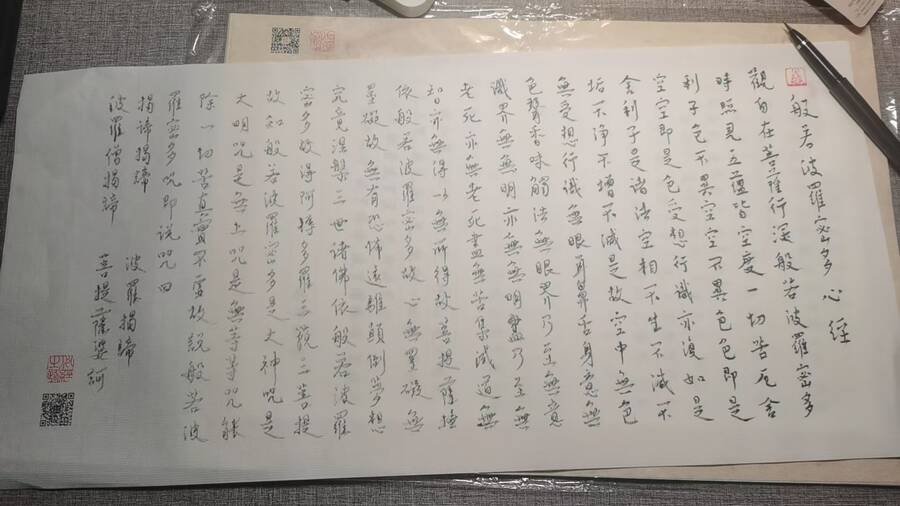 般若波羅密多心經
觀自在菩薩行深般若波羅密多
時照見五蘊皆空度一切苦厄舍
利子色不異空空不異色色即是
空空即是色受想行識亦復如是
舍利子是諸法空相不生不滅不
垢不淨不增不減是故空中無色
無受想行識無眼耳鼻舌身意無
色聲香味觸法無眼界乃至無意
識界無無明亦無無明盡乃至無
老死亦無老死盡無苦集滅道無
智亦無得以無所得故菩提薩埵
依般若波羅密多故心無罣礙無
罣礙故無有恐怖遠離顛倒夢想
究竟涅槃三世諸佛依般若波羅
密多故得阿耨多羅三藐三菩提
故知般若波羅密多是大神咒是
大明咒是無上咒是無等等咒能
除一切苦真實不虛故說般若波
羅密多咒即说咒曰
揭諦揭諦 波羅揭諦
波羅僧揭諦 菩提薩婆訶